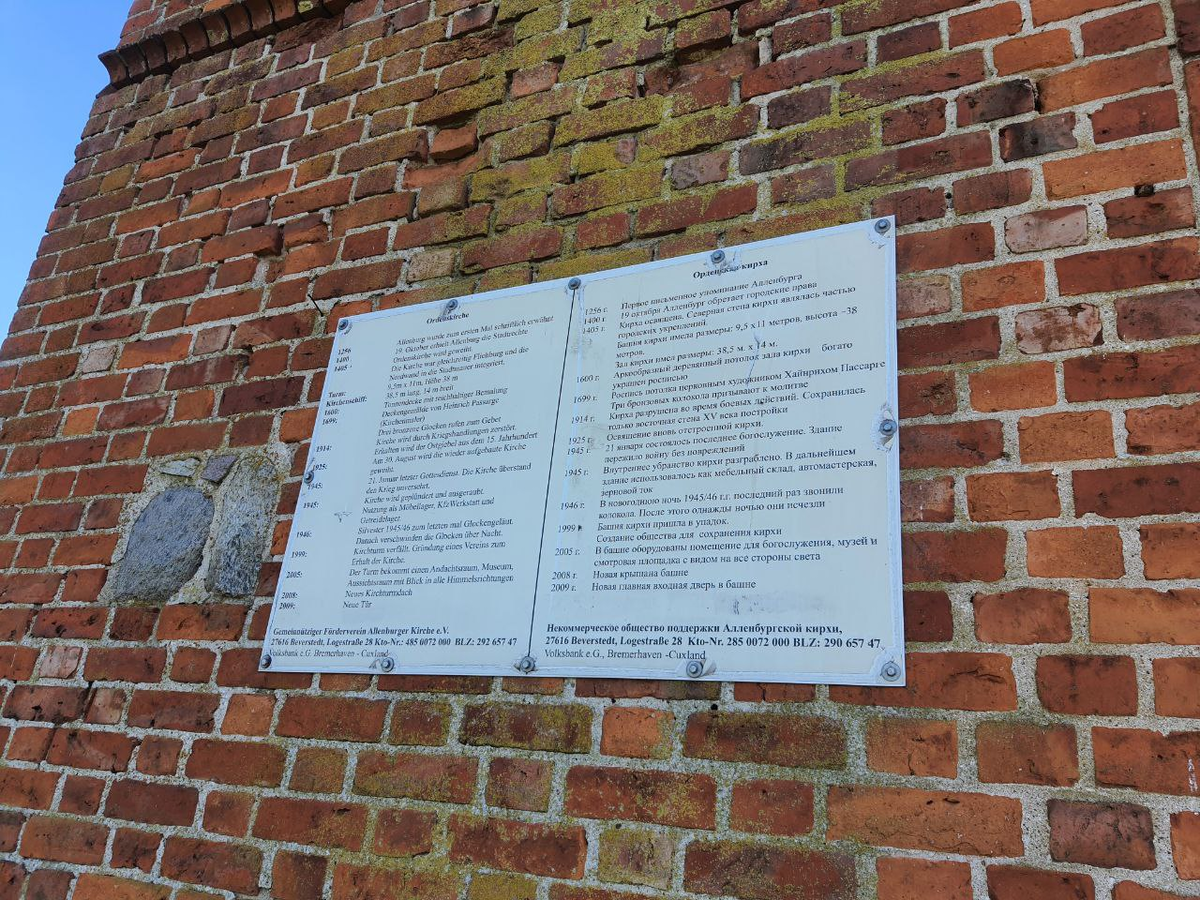 Ordenskirche
1256 Allenburg wurde zum ersten Mal schriftlich erwähnt
1400 19. Oktober erhielt Allenburg die Stadtrechte
1405 Ordenskirche wird geweiht
Die Kirche war gleichzeitig Fliehburg und die
Nordwand in die Stadtmauer integriert.
Turm: 9,5m x 11m, Höhe 38 m
Kirchenschiff: 38,5 m lang, 14 m breit
1600: Tonnendecke mit reichhaltiger Bemalung
1699: Deckengemälde von Heinrich Passarge
(Kirchenmaler)
Drei bronzene Glocken rufen zum Gebet
1914: Kirche wird durch Kriegshandlungen zerstört.
Erhalten wird der Ostgiebel aus dem 15. Jahrhundert
1925: Am 30. August wird die wieder aufgebaute Kirche
geweiht.
1945: 21. Januar letzter Gottesdienst. Die Kirche überstand
den Krieg unversehrt.
1945: Kirche wird geplündert und ausgeraubt.
Nutzung als Möbellager, Kfz-Werkstatt und
Getreidelager.
1946: Silvester 1945/46 zum letzten mal Glockengeläut.
Danach verschwinden die Glocken über Nacht.
1999: Kirchturm verfällt. Gründung eines Vereins zum
Erhalt der Kirche.
2005: Der Turm bekommt einen Andachtsraum, Museum,
Aussichtsraum mit Blick in alle Himmelsrichtungen
2008: Neues Kirchturmdach
2009: Neue Tür
Gemeinnütziger Förderverein Allenburger Kirche e.V.
27616 Beverstedt, Logestraße 28 Kto-Nr.: 485 0072 000 BLZ: 292 657 47
Volksbank e.G. Bremerhaven - Cuxland
Орденская кирха
1256 г. Первое письменное упоминание Алленбурга
1400 г. 19 октября Алленбург обретает городские права
1405 г. Кирха освящена. Северная стена кирхи являлась частью
городских укреплений.
Башня кирхи имела размеры: 9,5 х11 метров, высота –38
метров.
Зал кирхи имел размеры: 38,5 м. х 14 м.
1600 г. Аркообразный деревянный потолок зала кирхи богато
украшен росписью
1699 г. Роспись потолка церковным художником Хайнрихом Пассарге
Три бронзовых колокола призывают к молитве
1914 г. Кирха разрушена во время боевых действий. Сохранилась
только восточная стена XV века постройки
1925 г. Освящение вновь отстроенной кирхи.
1945 г. 21 января состоялось последнее богослужение. Здание
пережило войну без повреждений
1945 г. Внутреннее убранство кирхи разграблено. В дальнейшем
здание использовалось как мебельный склад, автомастерская,
зерновой ток
1946 г. В новогоднюю ночь 1945/46 г.г. последний раз звонили
колокола. После этого однажды ночью они исчезли
1999 г. Башня кирхи пришла в упадок.
Создание общества для сохранения кирхи
2005 г. В башне оборудованы помещение для богослужения, музей и
смотровая площадка с видом на все стороны света
2008 г. Новая крыша на башне
2009 г. Новая главная входная дверь в башне
Некоммерческое общество поддержки Алленбургской кирхи,
27616 Beverstedt, Logestraße 28 Kto-Nr. 285 0072 000 BLZ: 290 657 47
Volksbank e.G., Bremerhaven -Cuxland